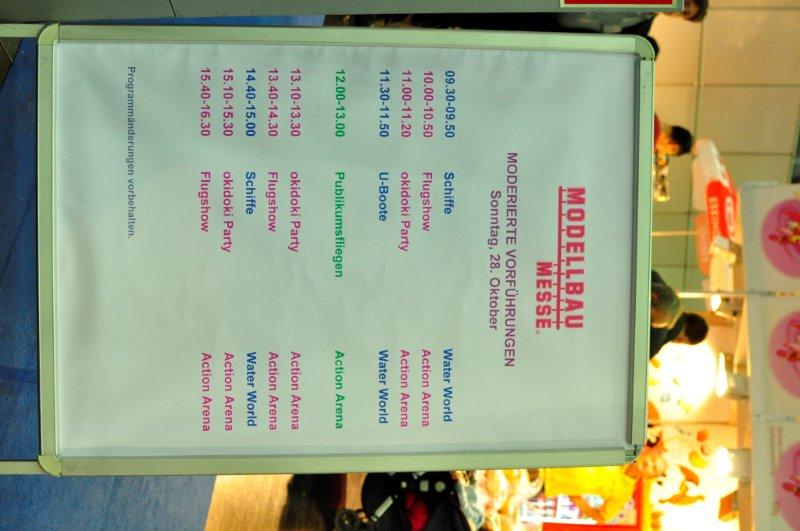 MODELLBAU
MESSE®
MODERIERTE VORFÜHRUNGEN
Sonntag, 28. Oktober
09.30-09.50 Schiffe Water World
10.00-10.50 Flugshow Action Arena
11.00-11.20 okidoki Party Action Arena
11.30-11.50 U-Boote Water World
12.00-13.00 Publikumsfliegen Action Arena
13.10-13.30 okidoki Party Action Arena
13.40-14.30 Flugshow Action Arena
14.40-15.00 Schiffe Water World
15.10-15.30 okidoki Party Action Arena
15.40-16.30 Flugshow Action Arena
Programmänderungen vorbehalten.